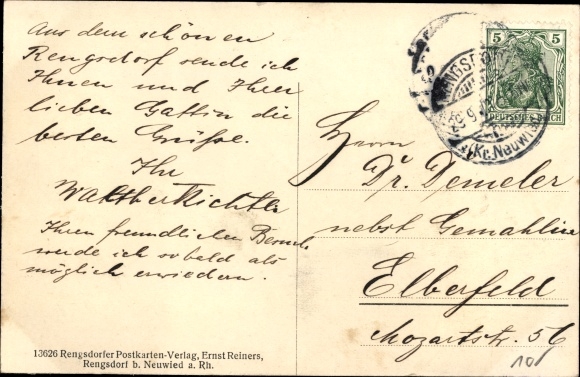 Aus dem schönen
Rengsdorf sende ich
Ihnen und Ihrer
lieben Gattin die
besten Grüße.
Ihr
Walther
Ihren freundlichen Besuch
werde ich sobald als
möglich erwiedern.
13626 Rengsdorfer Postkarten-Verlag, Ernst Reiners,
Rengsdorf b. Neuwied a. Rh.
5 5
DEUTSCHES REICH
RENGSDORF
(Kr. Neuwied)
Herrn
Dr. Demeler
nebst Gemahlin
Elberfeld
Mozartstr. 56
10